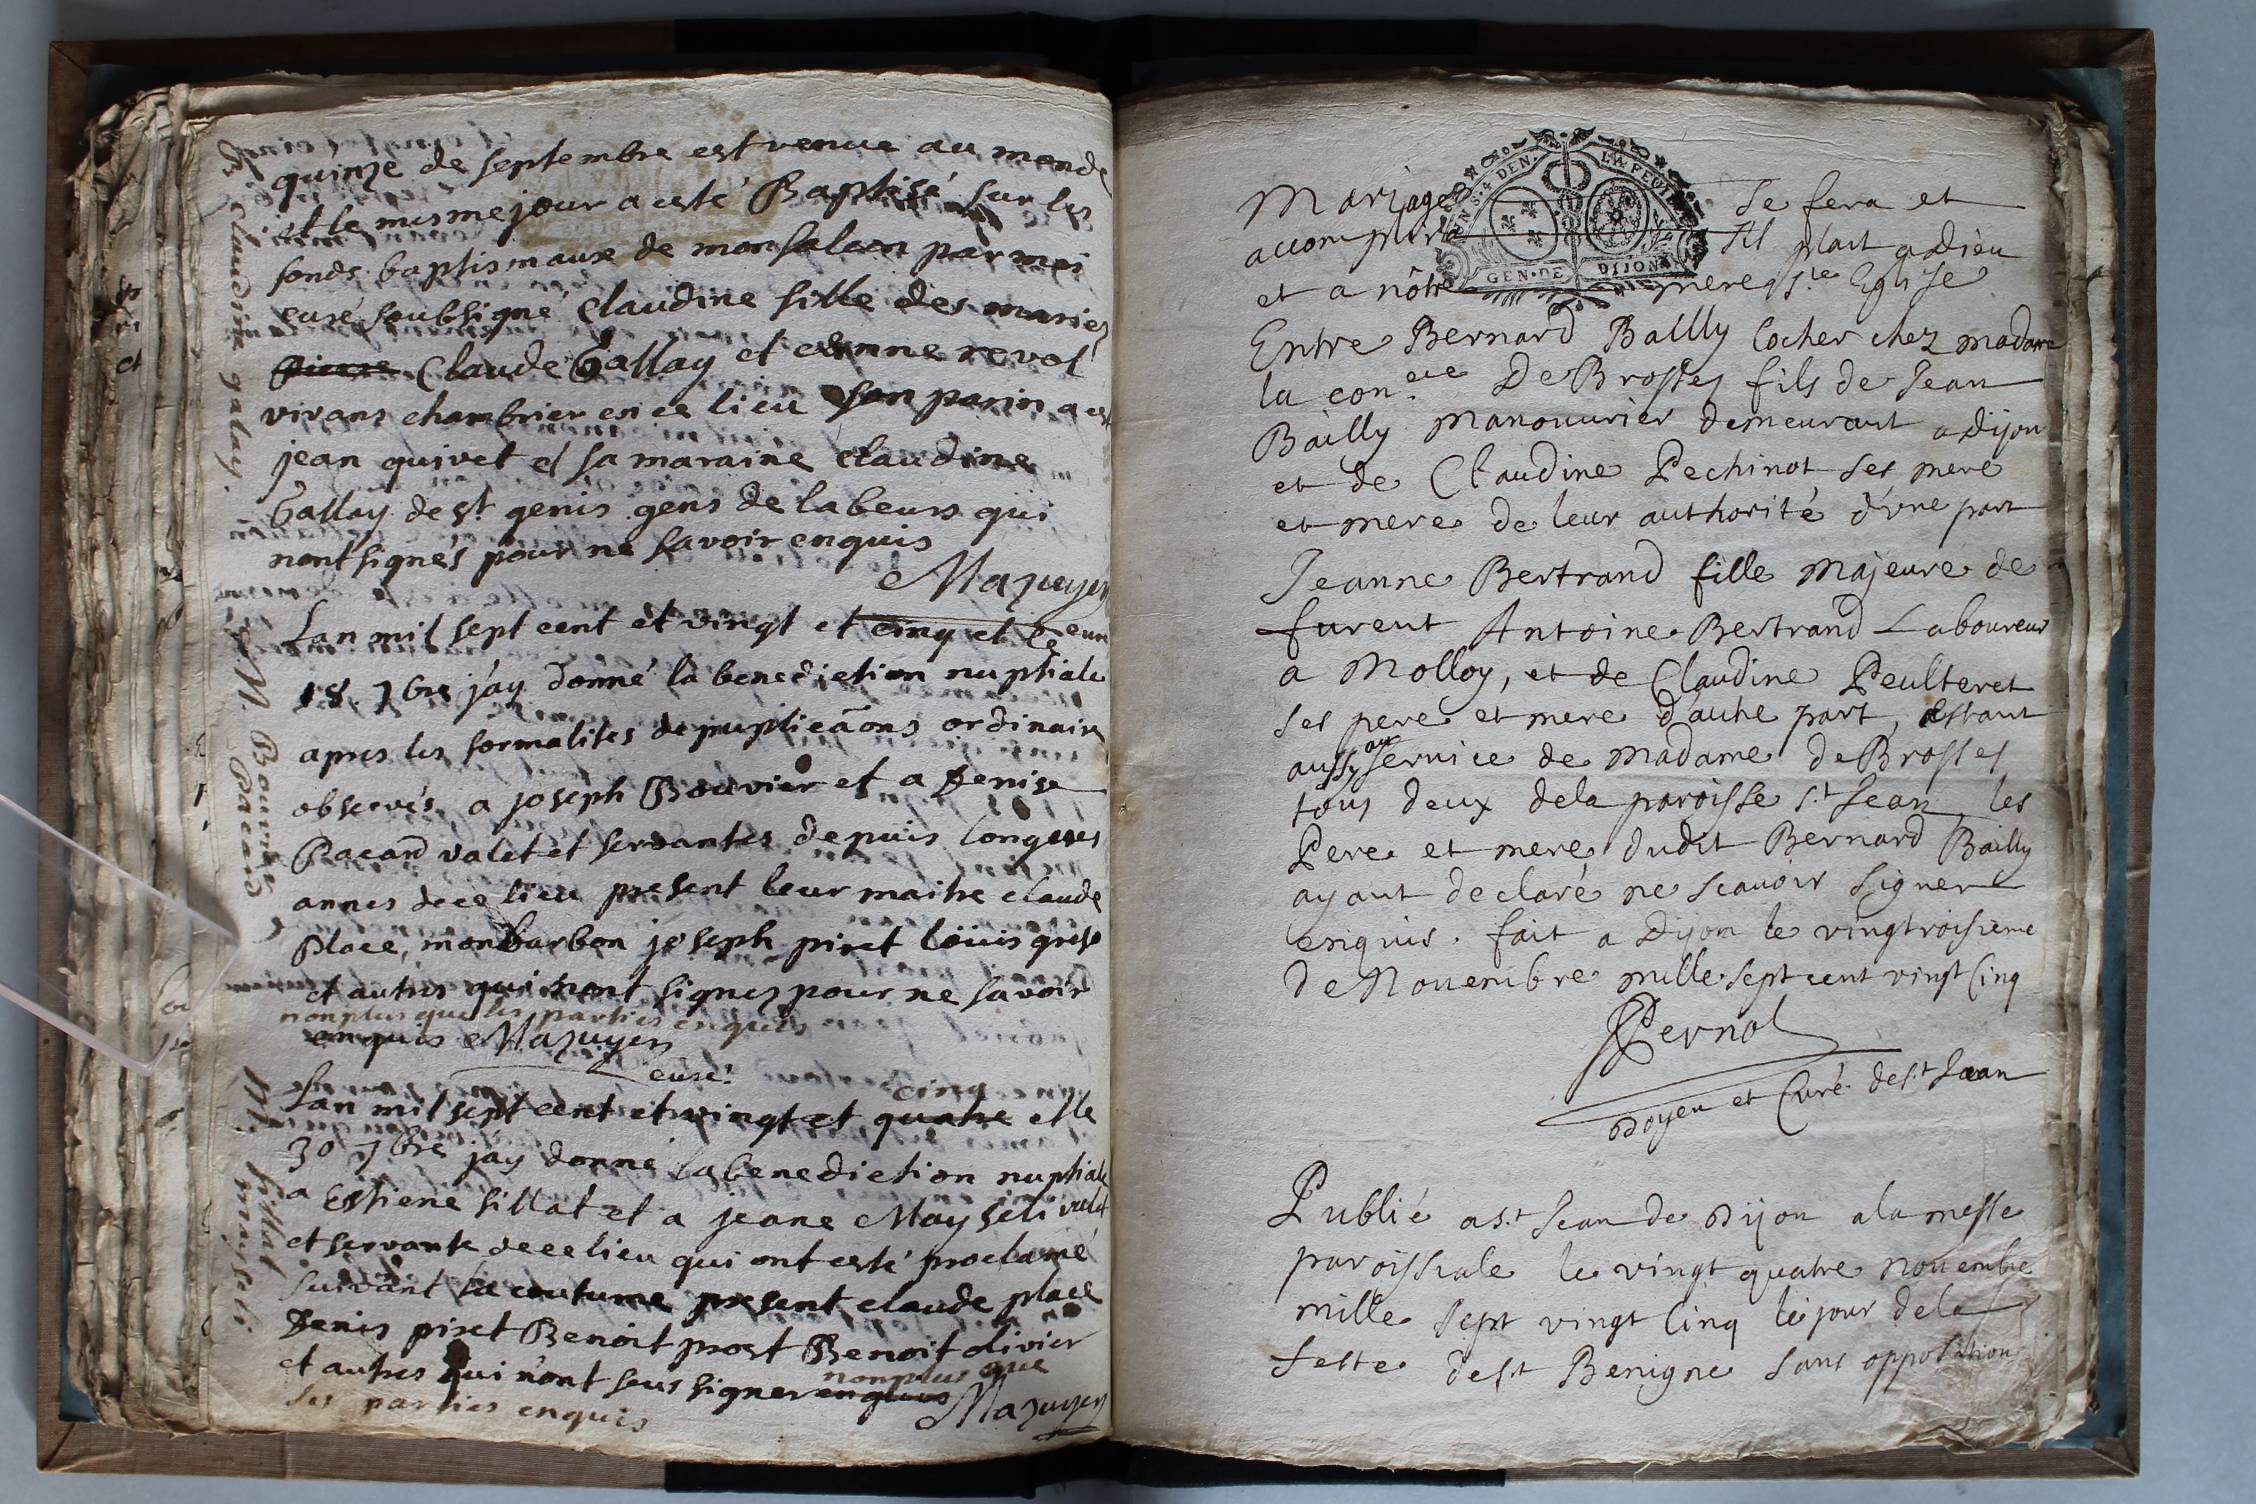 quinze de septembre est venue au monde
et le mesme jour a esté Baptisé sur les
fonds baptismaux de monsaleon par moi
curé soubsigné Claudine fille des mariez
pierre Claude Gallay et Anne revol
vivans chambrier en ce lieu son parin a est
jean quivet et sa maraine claudine
Gallay de st genis gens de labeurs qui
nont signés pour ne savoir enquis
Mazuyer
curé
B. claudine galay.
Lan mil sept cent et vingt et cinq et le
18. 7bre j'ay donné la benediction nuptiale
apres les formalites de puplicãons ordinaire
observés a joseph Bouvier et a Denise
Pacard valet et servantes depuis longues
annes de ce lieu present leur maitre claude
place, monbarbon joseph piret loüis grise
et autres qui nont signez pour ne savoir
non plus que les parties enquis
enquis Mazuyer
curé.
M. Bouvier
Pacard
Lan mil sept cent et vingt et quatre cinq et le
30 7bre jay donné la benediction nuptiale
a Estiene fillat et a jeane Mayseli valet
et servante de ce lieu qui ont esté proclamé
suivant la coutume present claude place
Denis piret Benoit prost Benoit olivier
et autres qui n'ont seus signer enquis non plus que
les parties enquis
Mazuyer
M. fillat
mayseli
Mariage se fera et
accomplira s'il plait a Dieu
et a nôtre mere ste Eglise
GEN·DE DIJON
Entre Bernard Bailly Cocher chez madame
la con.ere De Brosses fils de Jean
Bailly manouvrier demeurant a dijon
et de Claudine Pechinot ses pere
et mere de leur authorité d'vne part
Jeanne Bertrand fille majeure de
furent Antoine Bertrand Laboureur
a Molloy, et de Claudine Peulteret
ses pere et mere d'autre part, estant
aussy au service de madame de Brosses
tous deux de la paroisse st Jean les
Pere et mere dudit Bernard Bailly
ayant declaré ne scauoir signer
enquis. fait a Dijon le vingtroisieme
de Nouembre mille sept cent vingt Cinq
Pernot
Doyen et Curé de st Jean
Publié a st Jean de Dijon a la messe
paroissiale le vingt quatre nouembre
mille sept vingt Cinq le jour de la
feste de st Benigne sans opposition